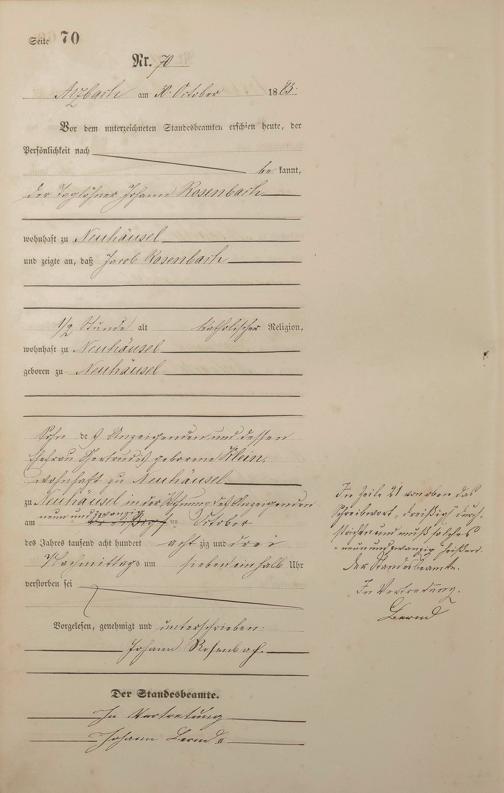 Seite 70
Nr. 70
Arzbach am 30. October 1883.
Vor dem unterzeichneten Standesbeamten erschien heute, der
Persönlichkeit nach
be kannt,
der Taglöhner Johann Rosenbach
wohnhaft zu Neuhäusel
und zeigte an, daß Jacob Rosenbach
1/2 Stunde alt katholischer Religion,
wohnhaft zu Neuhäusel
geboren zu Neuhäusel
Sohn des Anzeigenden und dessen
Ehefrau Gertrud geborene Klein,
wohnhaft zu Neuhäusel
zu Neuhäusel in der Wohnung des Anzeigenden
neun und zwanzig
am October
des Jahres tausend acht hundert acht zig und drei
Nachmittags um sieben einhalb Uhr
verstorben sei
Vorgelesen, genehmigt und unterschrieben.
Johann Rosenbach
Der Standesbeamte.
In Vertretung
Johann
In Zeile 21 von oben das
Schreibwort, dreißig durch-
strichen und muß solches
neun und zwanzig heißen.
Der Standesbeamte.
In Vertretung.